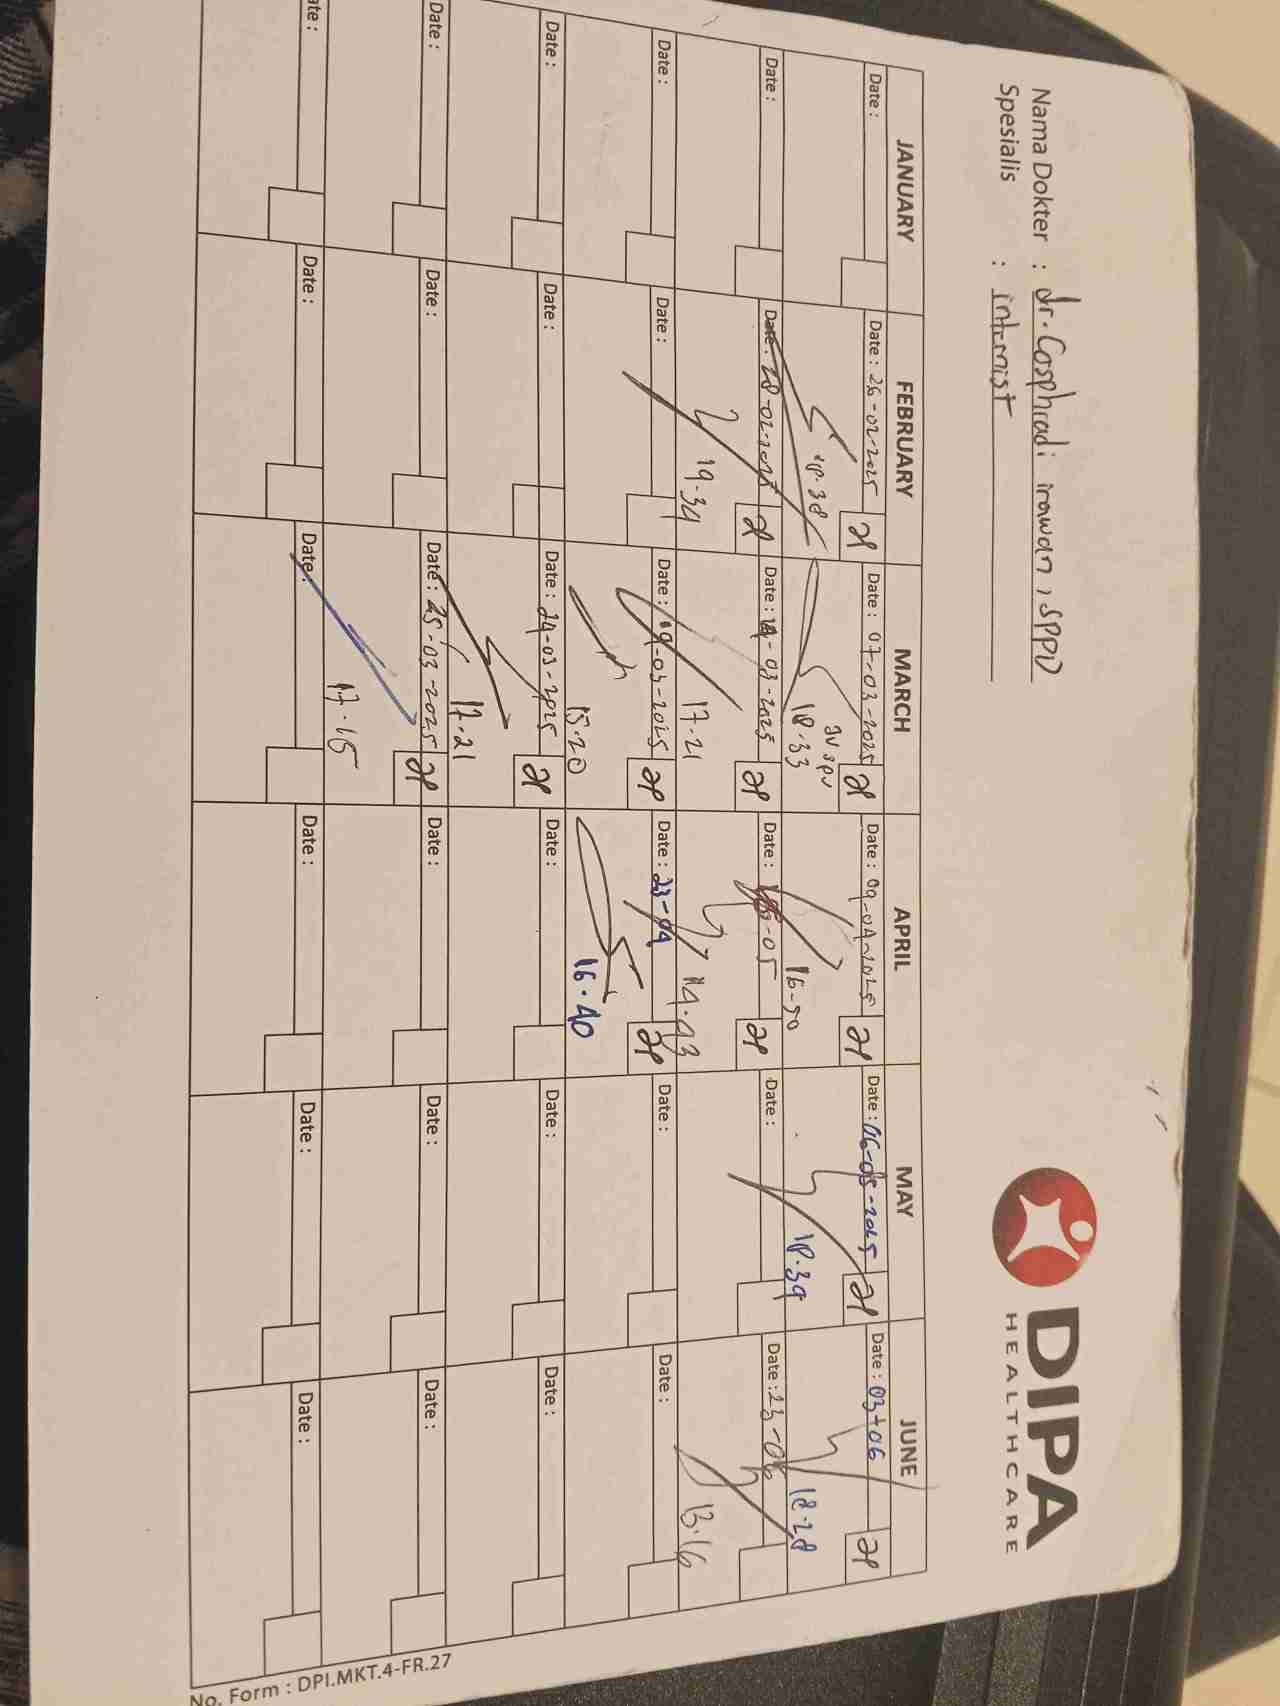 Nama Dokter : dr. Cosphiadi irawan, SPPD
Spesialis : internist
DIPA
HEALTHCARE
JANUARY FEBRUARY MARCH APRIL MAY JUNE
Date : Date : 26-02-2025 Date : 07-03-2025 Date : 09-04-2025 Date : 06-05-2025 Date : 03-06
18.38 JV SPV
18.33 16-50 18.39 18.28
Date : Date : 28-02-2025 Date : 14-03-2025 Date : -05 Date : Date : 23-06
19.34 17.21 14.43 13.16
Date : Date : Date : 19-03-2025 Date : 23-04 Date : Date :
15.20 16.40
Date : Date : Date : 24-03-2025 Date : Date : Date :
17.21
Date : Date : Date : 25-03-2025 Date : Date : Date :
17.15
ate : Date : Date : Date : Date : Date :
No. Form : DPI.MKT.4-FR.27